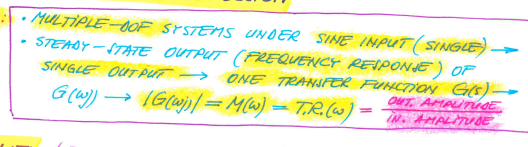 • MULTIPLE-DOF SYSTEMS UNDER SINE INPUT (SINGLE) →
• STEADY-STATE OUTPUT (FREQUENCY RESPONSE) OF
SINGLE OUTPUT → ONE TRANSFER FUNCTION G(s) →
G(ωj) → |G(ωj)| = M(ω) = T.R.(ω) = OUT. AMPLITUDE / IN. AMPLITUDE